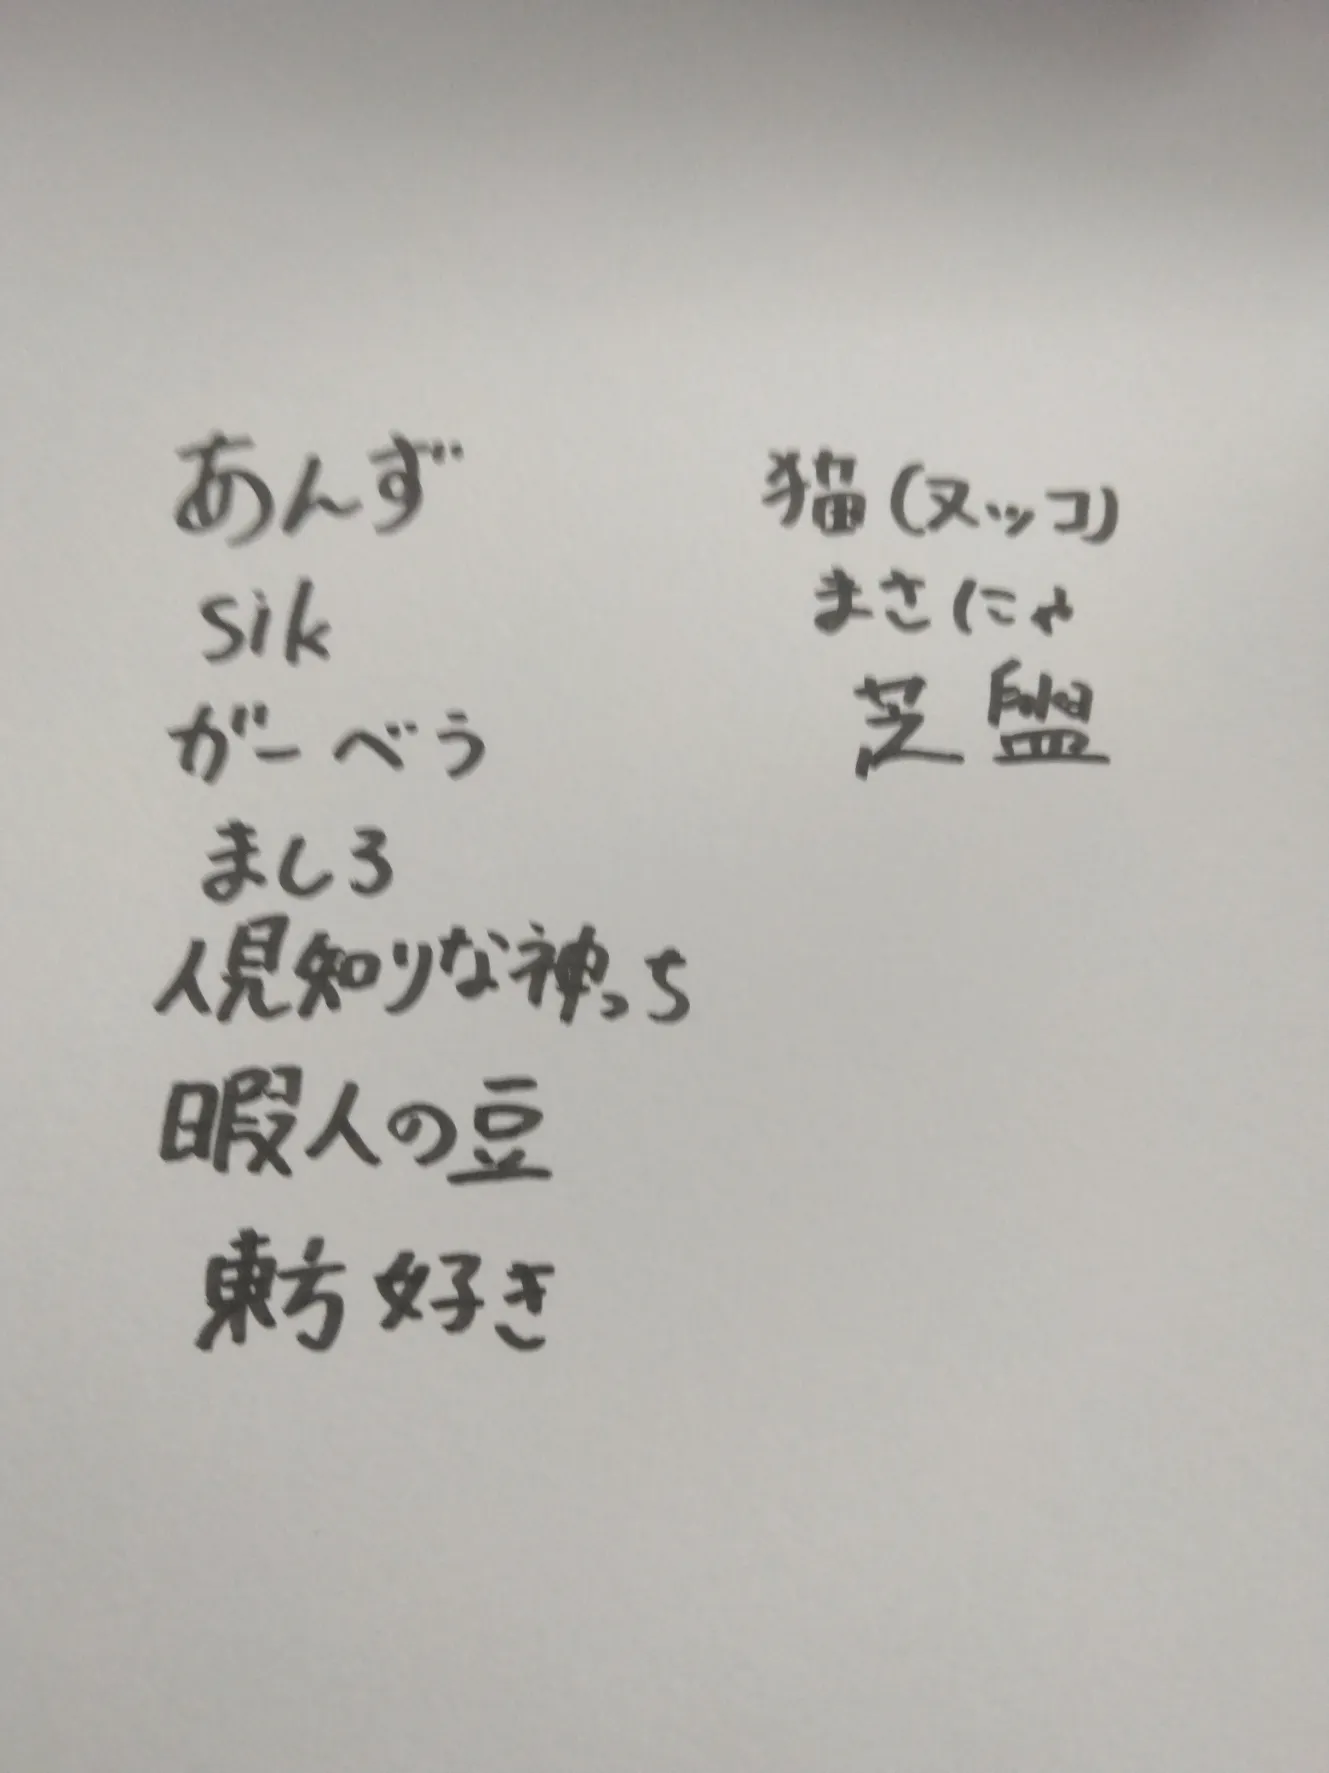 あんず
sik
がーべう
ましろ
人見知りな神っち
暇人の豆
東方好き
猫(ヌッコ)
まさにゃ
芝盤